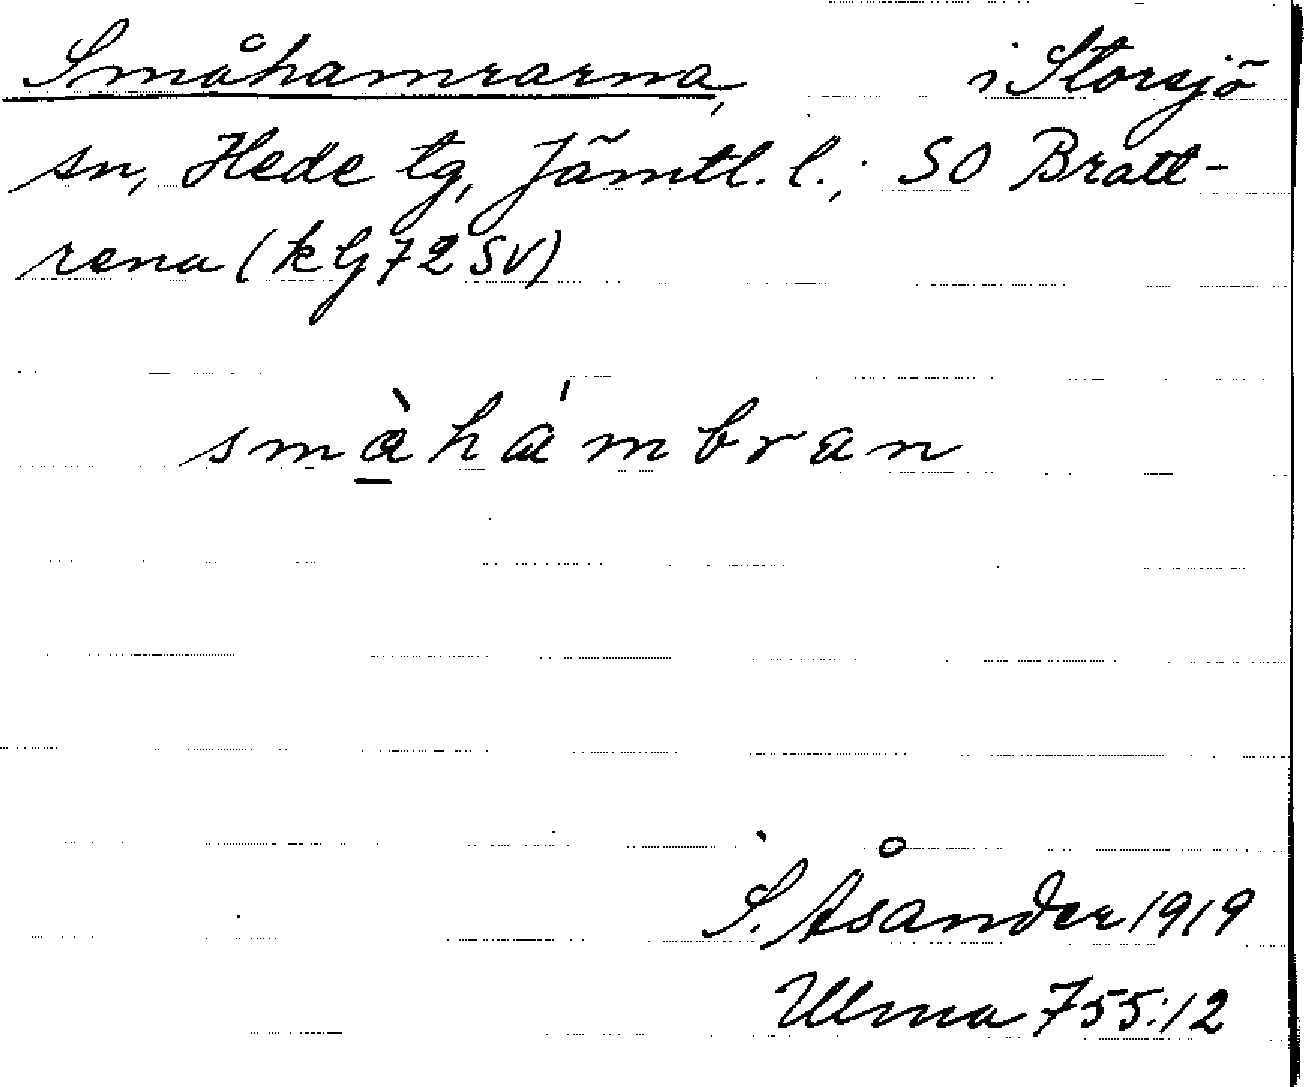 Småhamrarna, i Storsjö
sn, Hede tg, Jämtl. l.; SO Bratt-
rena (kbl 72 SV)
smà̱hámbran
S. Åsander 1919
Ulma 755:12